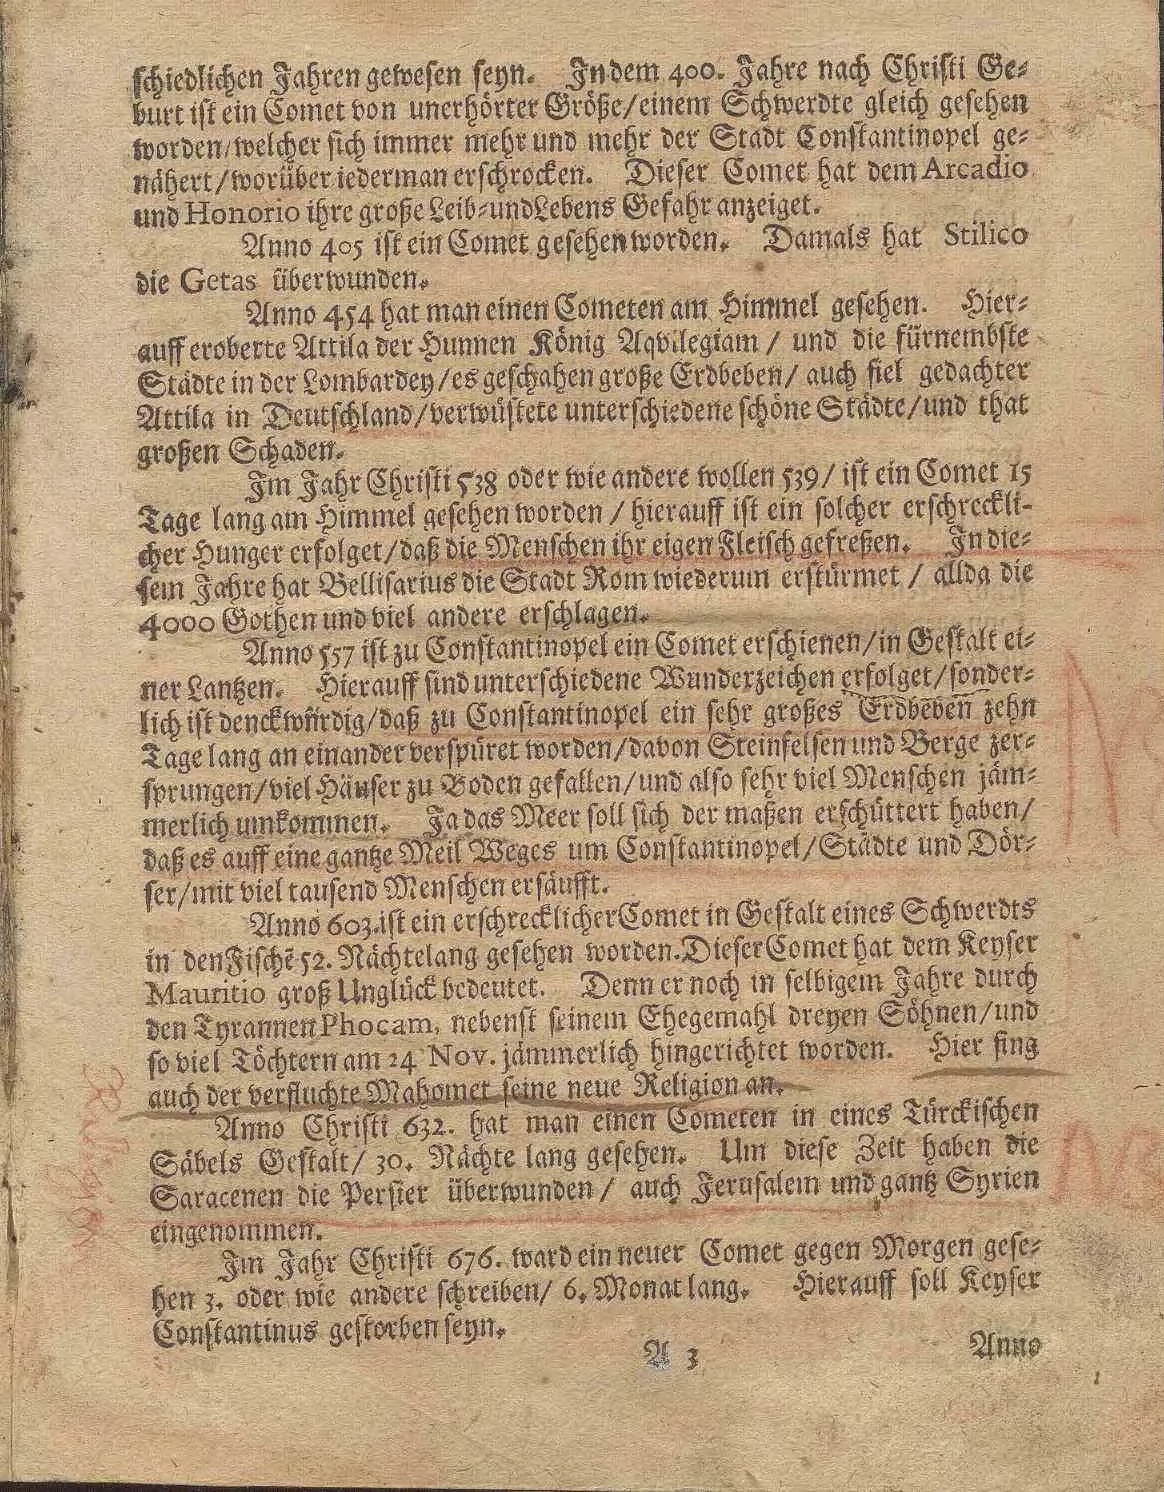 schiedlichen Jahren gewesen seyn. In dem 400. Jahre nach Christi Ge-
burt ist ein Comet von unerhörter Größe/einem Schwerdte gleich gesehen
worden/welcher sich immer mehr und mehr der Stadt Constantinopel ge-
nähert/worüber iederman erschrocken. Dieser Comet hat dem Arcadio
und Honorio ihre große Leib-und Lebens Gefahr anzeiget.
Anno 405 ist ein Comet gesehen worden. Damals hat Stilico
die Getas überwunden.
Anno 454 hat man einen Cometen am Himmel gesehen. Hier-
auff eroberte Attila der Hunnen König Aqvilegiam / und die fürnembste
Städte in der Lombardey/es geschahen große Erdbeben/ auch fiel gedachter
Attila in Deutschland/verwüstete unterschiedene schöne Städte/und that
großen Schaden.
Im Jahr Christi 538 oder wie andere wollen 539/ ist ein Comet 15
Tage lang am Himmel gesehen worden / hierauff ist ein solcher erschreckli-
cher Hunger erfolget/daß die Menschen ihr eigen Fleisch gefreßen. In die-
sem Jahre hat Bellisarius die Stadt Rom wiederum erstürmet / allda die
4000 Gothen und viel andere erschlagen.
Anno 557 ist zu Constantinopel ein Comet erschienen/in Gestalt ei-
ner Lantzen. Hierauff sind unterschiedene Wunderzeichen erfolget/sonder-
lich ist denckwürdig/daß zu Constantinopel ein sehr großes Erdbeben zehn
Tage lang an einander verspüret worden/davon Steinfelsen und Berge zer-
sprungen/viel Häuser zu Boden gefallen/und also sehr viel Menschen jäm-
merlich umkommen. Ja das Meer soll sich der maßen erschüttert haben/
daß es auff eine gantze Meil Weges um Constantinopel/Städte und Dör-
fer/mit viel tausend Menschen ersäufft.
Anno 603. ist ein erschrecklicher Comet in Gestalt eines Schwerdts
in den Fischē 52. Nächte lang gesehen worden. Dieser Comet hat dem Keyser
Mauritio groß Unglück bedeutet. Denn er noch in selbigem Jahre durch
den Tyrannen Phocam, nebenst seinem Ehegemahl dreyen Söhnen/und
so viel Töchtern am 24 Nov. jämmerlich hingerichtet worden. Hier fing
auch der verfluchte Mahomet seine neue Religion an.
Anno Christi 632. hat man einen Cometen in eines Türckischen
Säbels Gestalt/ 30. Nächte lang gesehen. Um diese Zeit haben die
Saracenen die Persier überwunden / auch Jerusalem und gantz Syrien
eingenommen.
Im Jahr Christi 676. ward ein neuer Comet gegen Morgen gese-
hen 3. oder wie andere schreiben/ 6. Monat lang. Hierauff soll Keyser
Constantinus gestorben seyn.
A 3 Anno